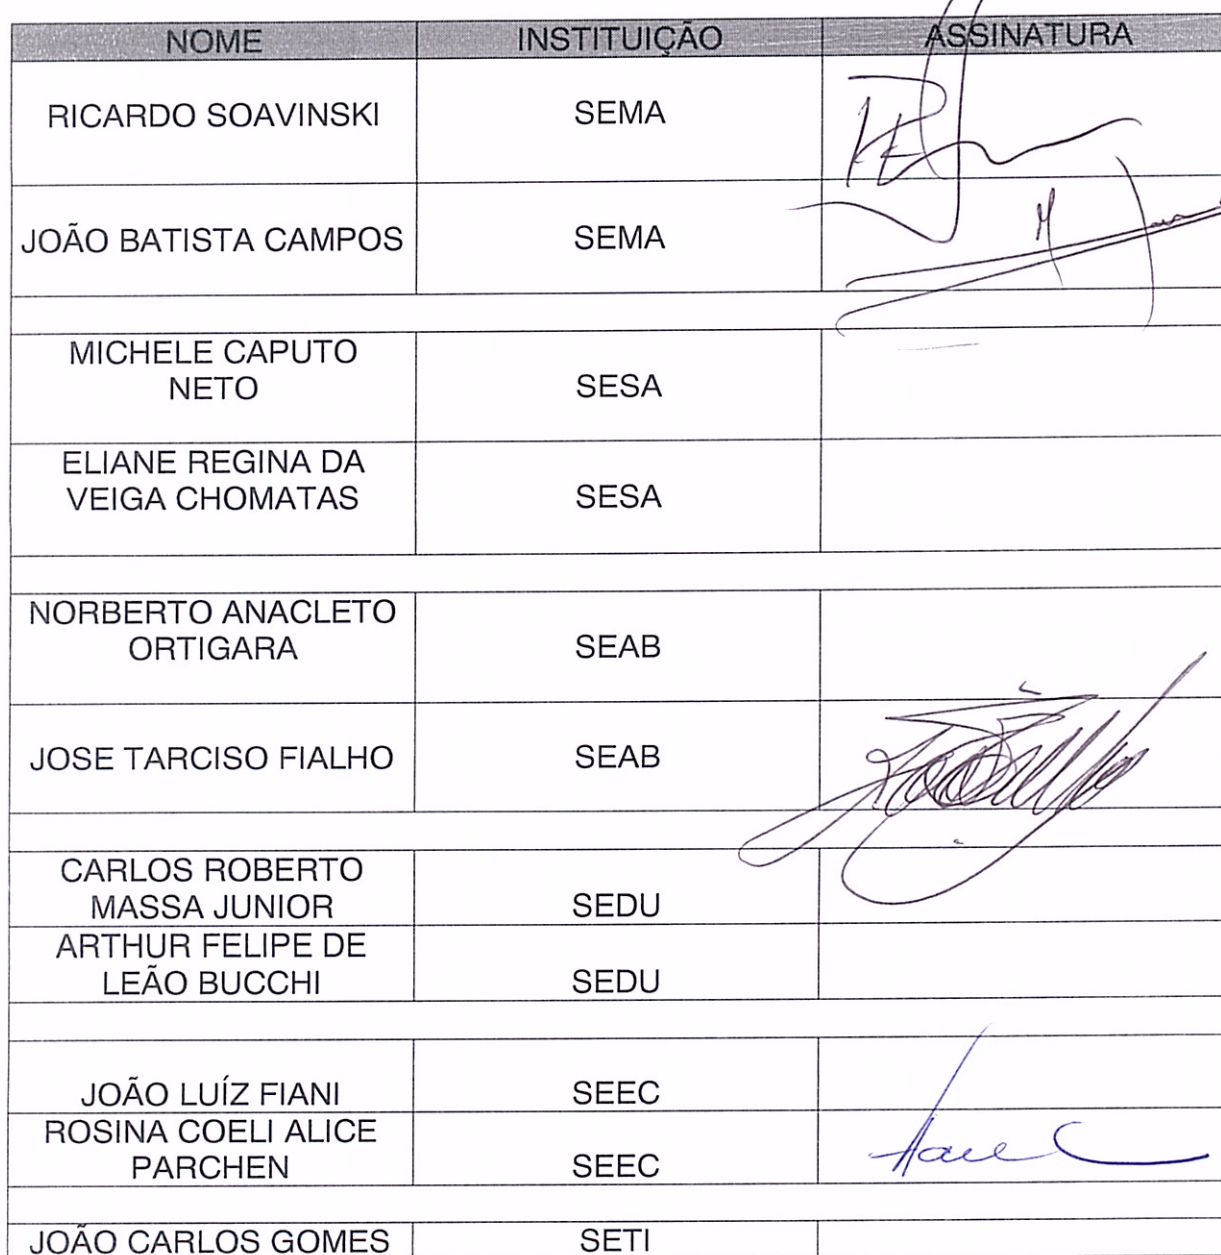 NOME INSTITUIÇÃO ASSINATURA
RICARDO SOAVINSKI SEMA
JOÃO BATISTA CAMPOS SEMA
MICHELE CAPUTO
NETO SESA
ELIANE REGINA DA
VEIGA CHOMATAS SESA
NORBERTO ANACLETO
ORTIGARA SEAB
JOSE TARCISO FIALHO SEAB
CARLOS ROBERTO
MASSA JUNIOR SEDU
ARTHUR FELIPE DE
LEÃO BUCCHI SEDU
JOÃO LUÍZ FIANI SEEC
ROSINA COELI ALICE
PARCHEN SEEC
JOÃO CARLOS GOMES SETI